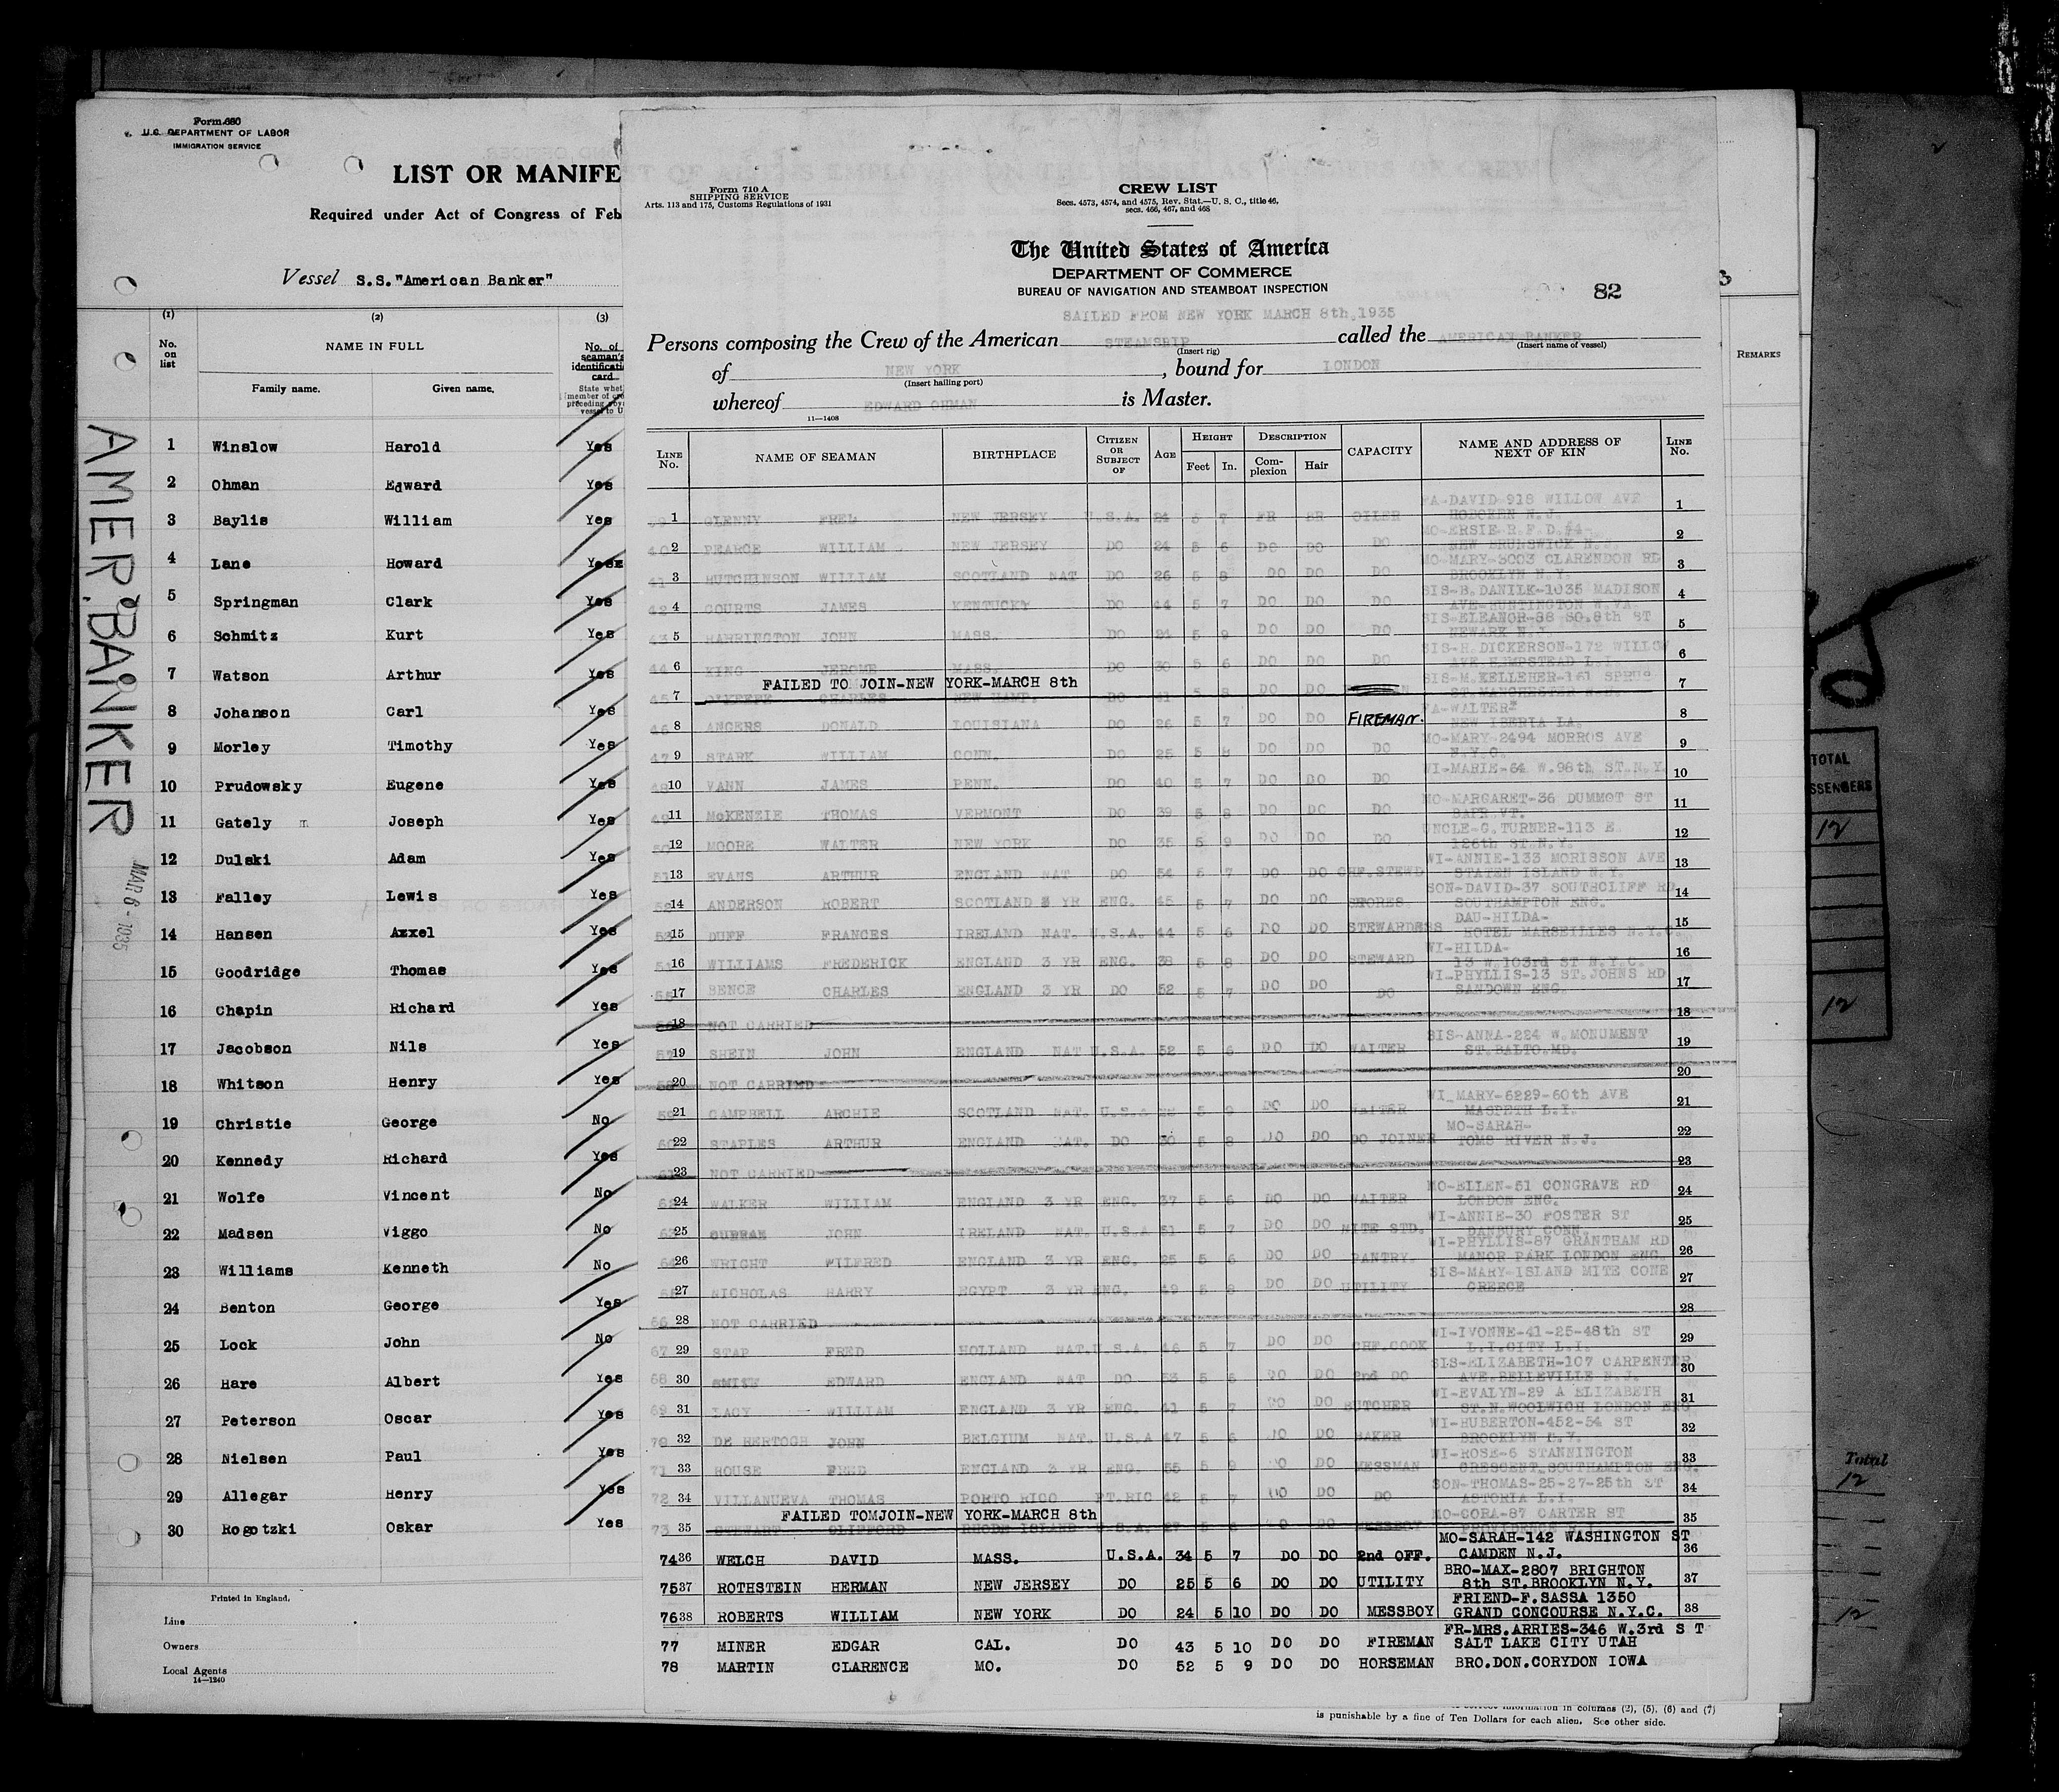 Form 680
U.S. DEPARTMENT OF LABOR
IMMIGRATION SERVICE
LIST OR MANIFE
Required under Act of Congress of Feb
Vessel S.S. "American Banker"
(1) (2) (3)
No. on list NAME IN FULL No. of seaman's identificati card
Family name. Given name.
AMER. BANKER
MAR 6 - 1935
1 Winslow Harold Yes
2 Ohman Edward Yes
3 Baylis William Yes
4 Lane Howard Yes
5 Springman Clark Yes
6 Schmitz Kurt Yes
7 Watson Arthur Yes
8 Johanson Carl Yes
9 Morley Timothy Yes
10 Prudowsky Eugene Yes
11 Gately Joseph Yes
12 Dulski Adam Yes
13 Falley Lewis Yes
14 Hansen Axxel Yes
15 Goodridge Thomas Yes
16 Chapin Richard Yes
17 Jacobson Nils Yes
18 Whitson Henry Yes
19 Christie George No
20 Kennedy Richard Yes
21 Wolfe Vincent No
22 Madsen Viggo No
23 Williams Kenneth No
24 Benton George Yes
25 Lock John No
26 Hare Albert Yes
27 Peterson Oscar Yes
28 Nielsen Paul Yes
29 Allegar Henry Yes
30 Rogotzki Oskar Yes
Printed in England.
Line
Owners
Local Agents
14—1240
Form 710 A
SHIPPING SERVICE
Arts. 113 and 175, Customs Regulations of 1931
CREW LIST
Secs. 4573, 4574, and 4575, Rev. Stat.—U. S. C., title 46,
secs. 466, 467, and 468
The United States of America
DEPARTMENT OF COMMERCE
BUREAU OF NAVIGATION AND STEAMBOAT INSPECTION
82
SAILED FROM NEW YORK MARCH 8th,1935
Persons composing the Crew of the American STEAMSHIP called the AMERICAN BANKER
(Insert rig) (Insert name of vessel)
of NEW YORK, bound for LONDON
(Insert hailing port)
whereof EDWARD OHMAN is Master.
11—1408
LINE No. NAME OF SEAMAN BIRTHPLACE CITIZEN OR SUBJECT OF AGE HEIGHT Feet In. DESCRIPTION Complexion Hair CAPACITY NAME AND ADDRESS OF NEXT OF KIN LINE No.
FA-DAVID-918 WILLOW AVE
1 GLENNY NEW JERSEY U.S.A. 24 5 7 FR BR OILER HOBOKEN N.J. 1
MO-ERSIE R.F.D.#4-
2 PEARCE WILLIAM NEW JERSEY DO 24 5 6 DO DO DO NEW BRUNSWICK 2
MO-MARY-3003 CLARENDON RD
3 HUTCHINSON WILLIAM SCOTLAND NAT DO 26 5 8 DO DO DO BROOKLYN N.Y. 3
SIS-B.DANILK-1035 MADISON
4 COURTS JAMES KENTUCKY DO 44 5 7 DO DO DO AVE-HUNTINGTON W.VA. 4
SIS-ELEANOR-88 SO.8th ST
5 HARRINGTON JOHN MASS. DO 24 5 9 DO DO DO NEWARK N.J. 5
SIS-H.DICKERSON-172 WILLOW
6 KING JEROME MASS. DO 30 5 6 DO DO DO AVE.HEMPSTEAD L.I. 6
FAILED TO JOIN-NEW YORK-MARCH 8th SIS-M.KELLEHER-161
7 CHARLES NEW HAMP. DO 41 5 8 DO DO ST.MANCHESTER 7
FA-WALTER
8 ANGERS DONALD LOUISIANA DO 26 5 7 DO DO FIREMAN. NEW IBERIA LA. 8
MO-MARY-2494 MORRIS AVE
9 STARK WILLIAM CONN. DO 25 5 8 DO DO DO N.Y.C. 9
10 VANN JAMES PENN. DO 40 5 7 DO DO DO WI-MARIE-64 W.98th ST.N.Y. 10
MO-MARGARET-36 DUMMOT ST
11 McKENZIE THOMAS VERMONT DO 39 5 8 DO DO DO BARR VT. 11
UNCLE-G.TURNER-113 E.
12 MOORE WALTER NEW YORK DO 35 5 9 DO DO DO 126th ST.N.Y. 12
WI-ANNIE-133 MORISSON AVE
13 EVANS ARTHUR ENGLAND NAT DO 54 5 7 DO DO CHF.STEWD STATEN ISLAND N.Y. 13
SON-DAVID-37 SOUTHCLIFF RD
14 ANDERSON ROBERT SCOTLAND YR ENG. 45 5 7 DO DO SOUTHAMPTON ENG. 14
DAU-HILDA-
15 DUFF FRANCES IRELAND NAT. U.S.A. 44 5 6 DO DO STEWARDESS HOTEL MARSEILLES N.Y.C. 15
WI-HILDA-
16 WILLIAMS FREDERICK ENGLAND 3 YR ENG. 38 5 8 DO DO STEWARD 13 W.103rd ST N.Y.C. 16
WI-PHYLLIS-13 ST.JOHNS RD
17 BENCE CHARLES ENGLAND 3 YR DO 52 5 7 DO DO DO SANDOWN ENG. 17
18 NOT CARRIED 18
SIS-ANNA-224 W.MONUMENT
19 SHEIN JOHN ENGLAND NAT U.S.A. 52 5 6 DO DO WAITER ST.BALTO.MD. 19
20 NOT CARRIED 20
WI MARY-6229-60th AVE
21 CAMPBELL ARCHIE SCOTLAND NAT. U.S.A 5 DO DO WAITER MASPETH L.I. 21
MO-SARAH-
22 STAPLES ARTHUR ENGLAND NAT. DO 30 5 8 DO DO DO JOINER TOMS RIVER N.J. 22
23 NOT CARRIED 23
MO-ELLEN-51 CONGRAVE RD
24 WALKER WILLIAM ENGLAND 3 YR ENG. 37 5 6 DO DO WAITER LONDON ENG. 24
WI-ANNIE-30 FOSTER ST
25 CURRAN JOHN IRELAND NAT. U.S.A 51 5 7 DO DO NITE STD. DANBURY CONN. 25
WI-PHYLLIS-87 GRANTHAM RD
26 WRIGHT WILFRED ENGLAND 3 YR ENG. 25 5 6 DO DO PANTRY. MANOR PARK LONDON ENG. 26
SIS-MARY-ISLAND MITE CONE
27 NICHOLAS HARRY EGYPT 3 YR ENG. 49 5 8 DO DO UTILITY GREECE 27
28 NOT CARRIED 28
WI-IVONNE-41-25-48th ST
29 STAP FRED HOLLAND NAT.U.S.A. 46 5 7 DO DO CHF.COOK L.I.CITY L.I. 29
SIS-ELIZABETH-107 CARPENTER
30 EDWARD ENGLAND NAT DO 53 5 6 DO DO 2nd DO AVE.BELLEVILLE N.J. 30
WI-EVALYN-29 A ELIZABETH
31 LACY WILLIAM ENGLAND 3 YR ENG. 41 5 7 DO DO BUTCHER ST.N.WOOLWICH LONDON ENG 31
WI-HUBERTON-452-54 ST
32 DE HERTOGH JOHN BELGIUM NAT. U.S.A 47 5 6 DO DO BAKER BROOKLYN N.Y. 32
WI-ROSE-6 STANNINGTON
33 ROUSE FRED ENGLAND 3 YR ENG. 55 5 9 DO DO MESSMAN CRESCENT.SOUTHAMPTON ENG. 33
SON-THOMAS-25-27-25th ST
34 VILLANUEVA THOMAS PORTO RICO PT.RIC 42 5 7 DO DO DO ASTORIA L.I. 34
FAILED TOMJOIN-NEW YORK-MARCH 8th MO-CORA-87 CARTER ST
35 STEWART CLIFFORD RHODE ISLAND U.S.A. 27 5 DO DO MESSBOY 35
MO-SARAH-142 WASHINGTON ST
74 36 WELCH DAVID MASS. U.S.A. 34 5 7 DO DO 2nd OFF. CAMDEN N.J. 36
BRO-MAX-2807 BRIGHTON
75 37 ROTHSTEIN HERMAN NEW JERSEY DO 25 5 6 DO DO UTILITY 8th ST.BROOKLYN N.Y. 37
FRIEND-F.SASSA 1350
76 38 ROBERTS WILLIAM NEW YORK DO 24 5 10 DO DO MESSBOY GRAND CONCOURSE N.Y.C. 38
FR-MRS.ARRIES-346 W.3rd S T
77 MINER EDGAR CAL. DO 43 5 10 DO DO FIREMAN SALT LAKE CITY UTAH
78 MARTIN CLARENCE MO. DO 52 5 9 DO DO HORSEMAN BRO.DON.CORYDON IOWA
REMARKS
TOTAL
12
12
Total
12
12
information in columns (2), (5), (6) and (7)
is punishable by a fine of Ten Dollars for each alien. See other side.